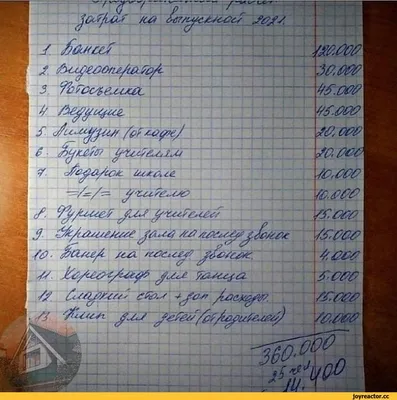 затрат на выпускной 2021
1 Банкет 120.000
2. Видеооператор 30.000
3 Фотосъемка 45.000
4 Ведущие 45.000
5. Лимузин (от кафе) 20.000
6. Букеты учителям 20.000
7. Подарок школе 10.000
=/=/= учителю 10.000
8. Фуршет для учителей 15.000
9. Украшение зала на послед звонок 15.000
10. Банер на послед звонок 4.000
11. Хореограф для танца 5.000
12 Сладкий стол + доп расходы. 15.000
13. Клип для детей (от родителей) 10.000
360.000
25 чел
14.400
joyreactor.cc